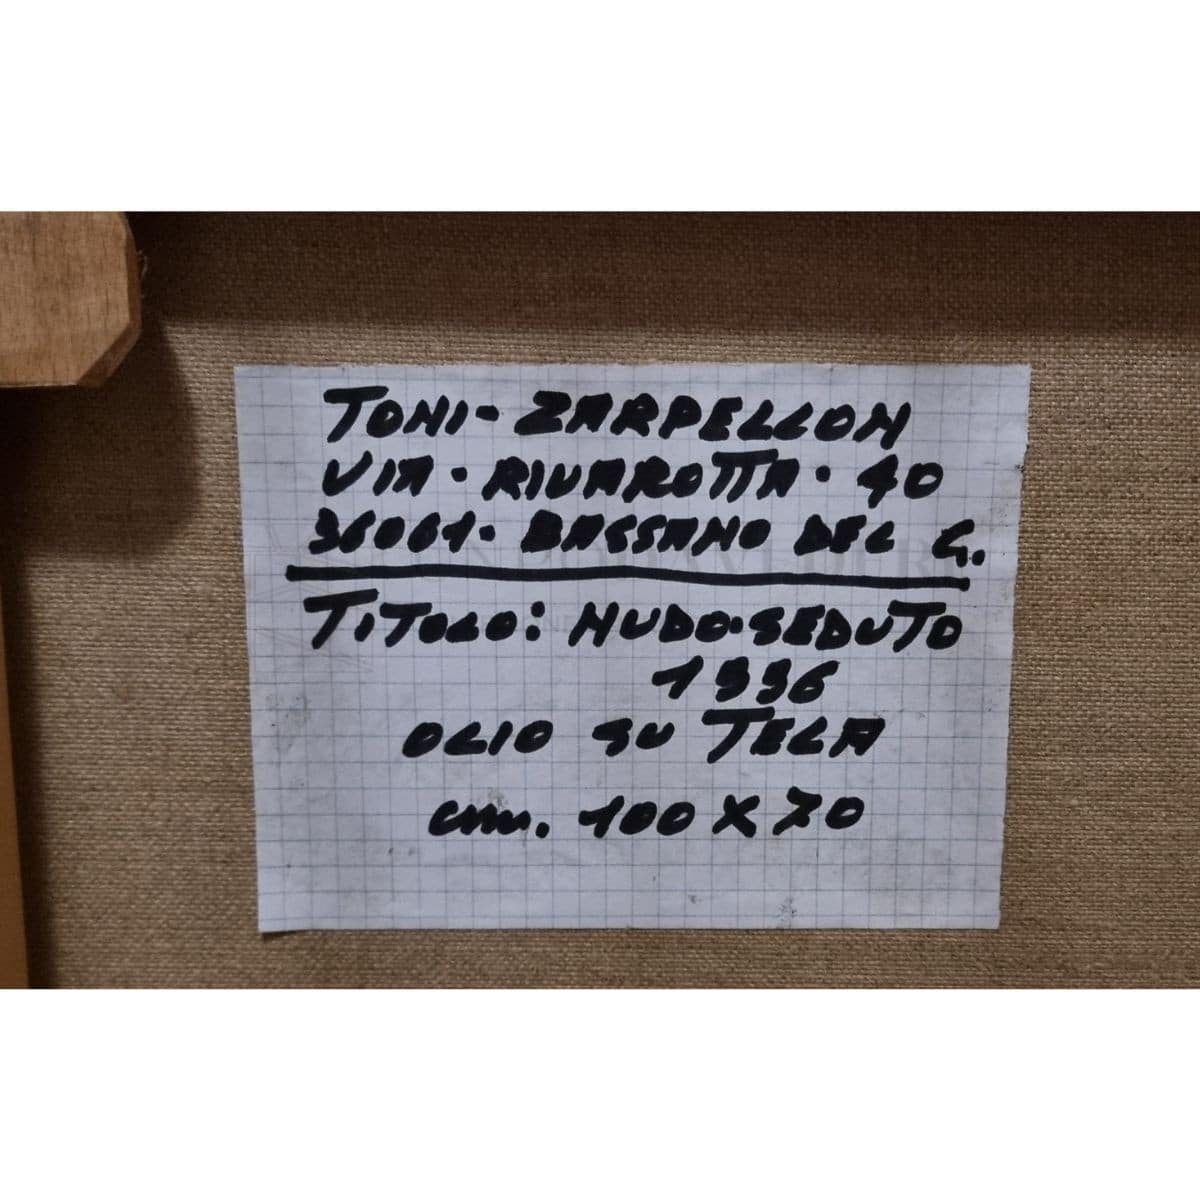 TONI - ZARPELLON
VIA · RIVAROTTA · 40
36061 · BASSANO DEL G.
TITOLO: NUDO·SEDUTO
1996
OLIO SU TELA
cm. 100 X 70